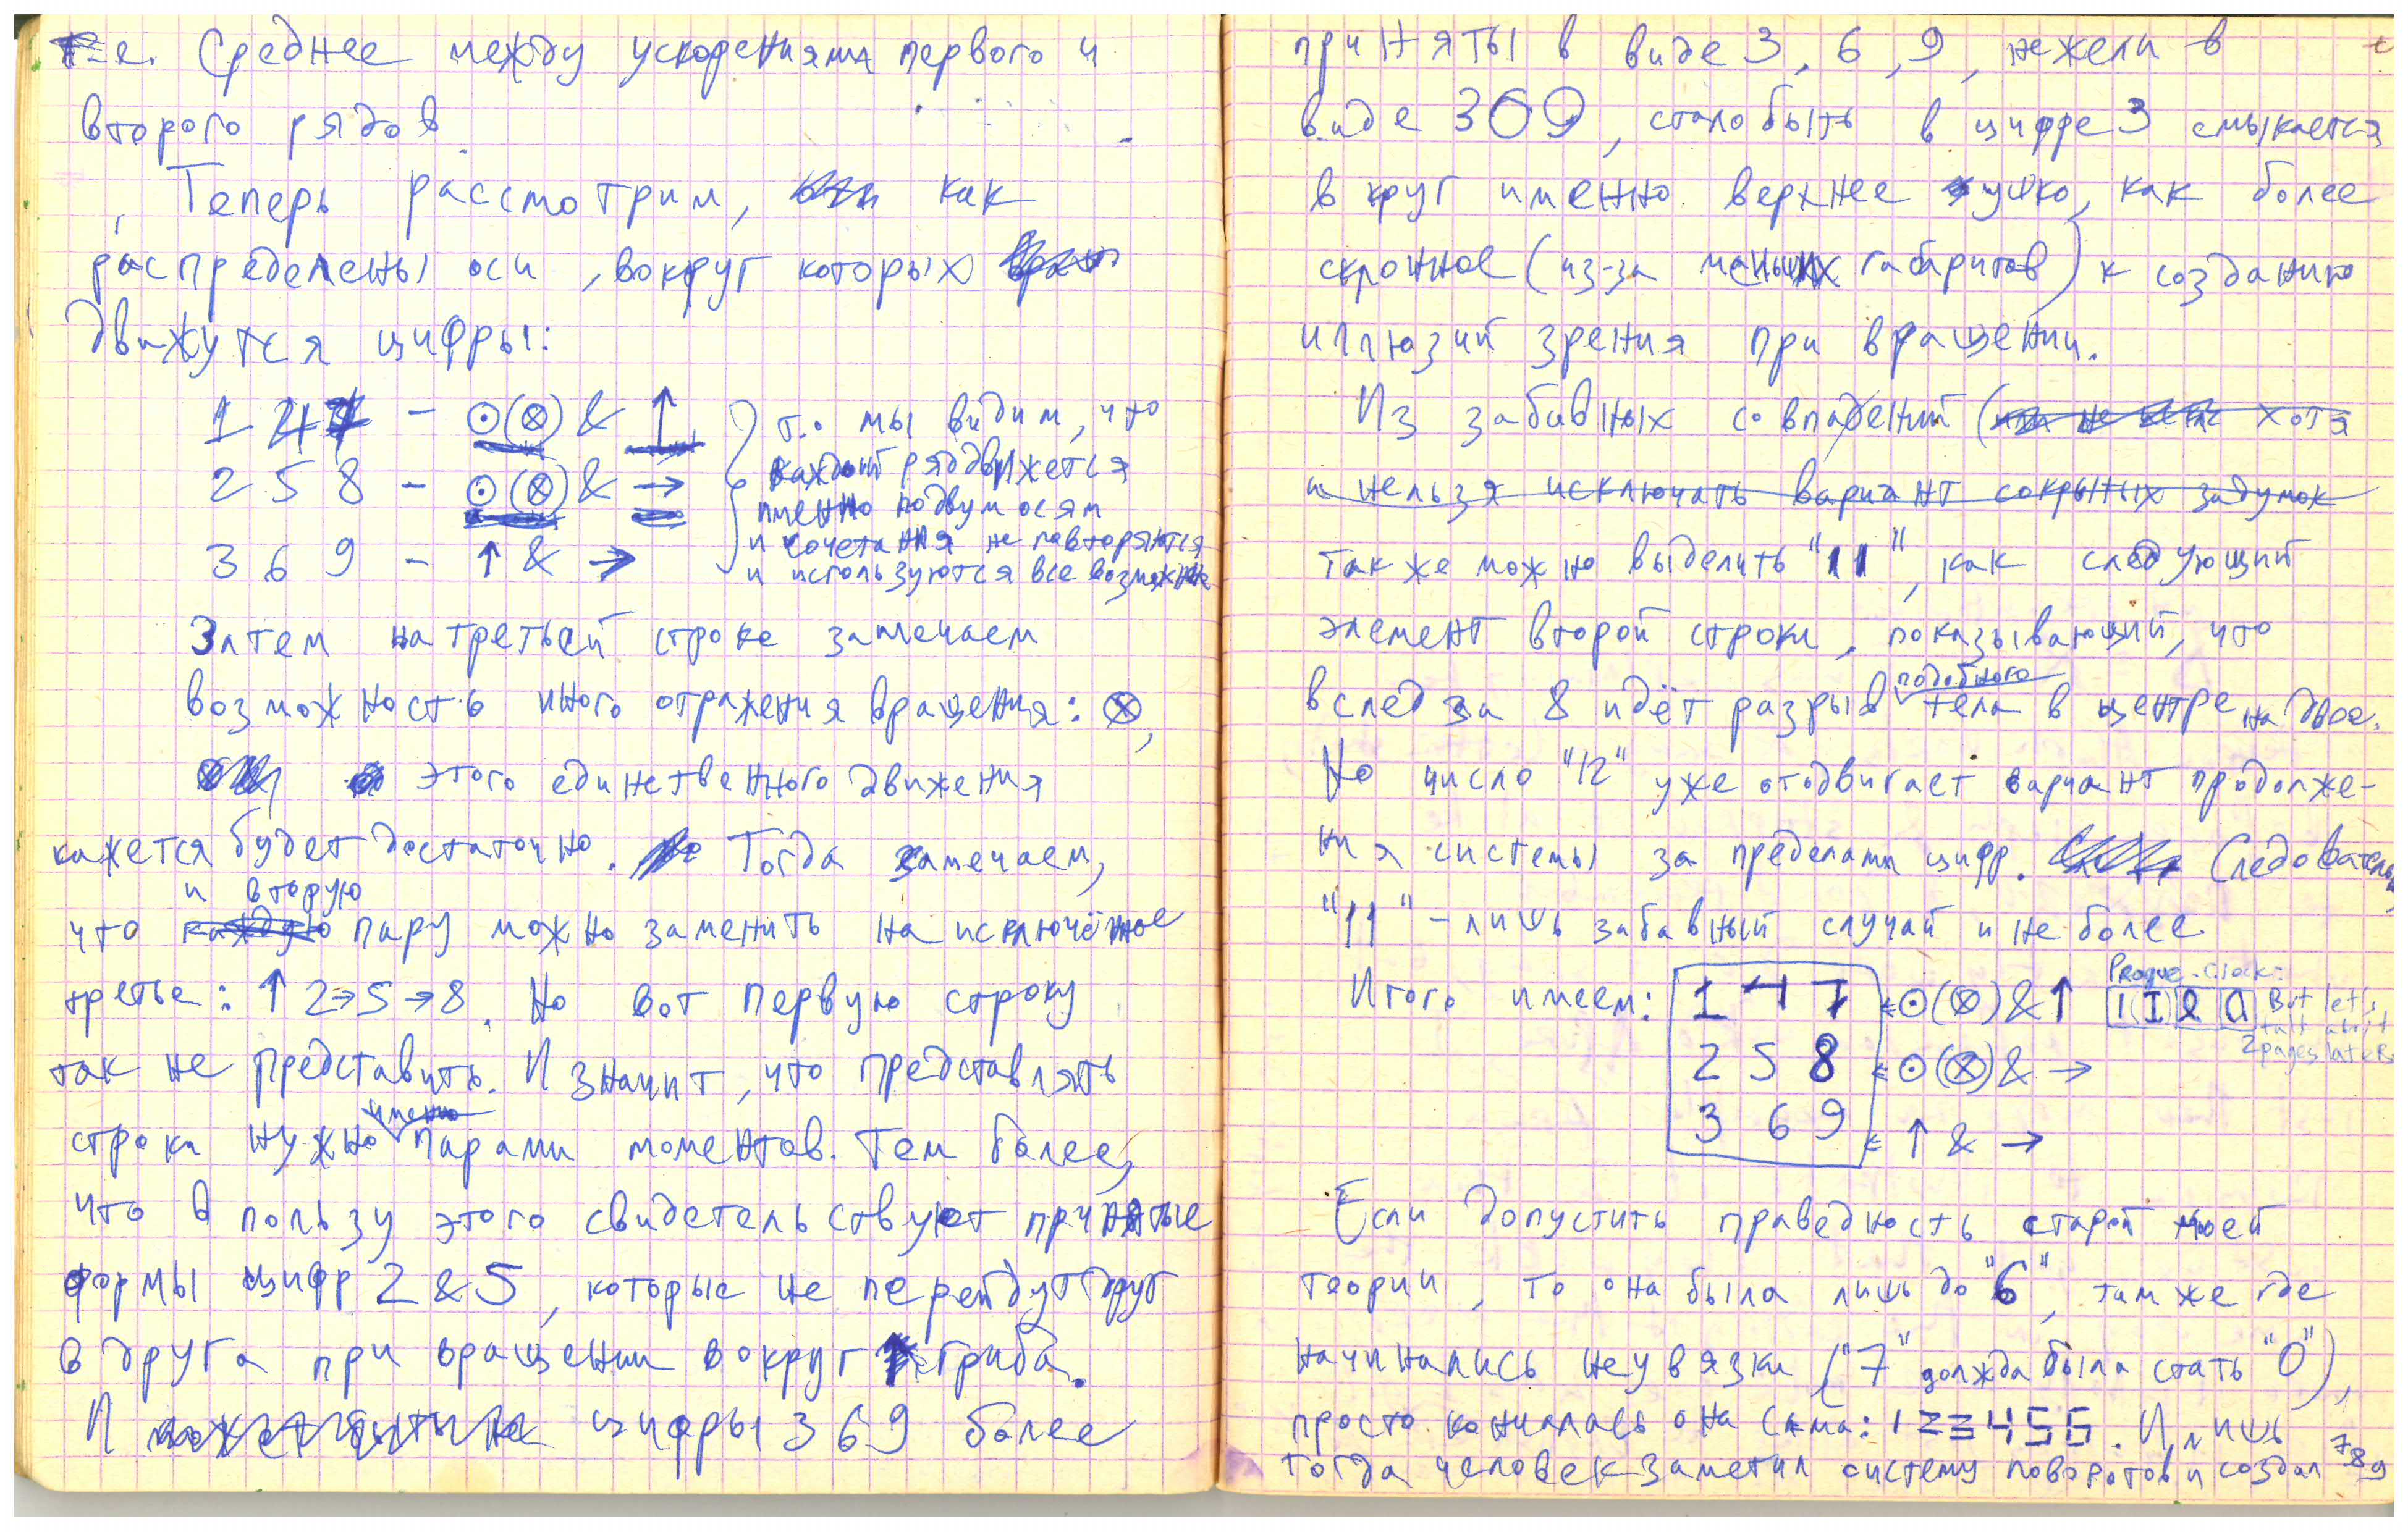 т.е. Среднее между ускорениями первого и
второго рядов.
Теперь рассмотрим, как
распределены оси, вокруг которых
движутся цифры:
1 4 7 - ⊙(⊗) & ↑
2 5 8 - ⊙(⊗) & →
3 6 9 - ↑ & →
т.о мы видим, что
каждый ряд движется
именно по двум осям
и сочетания не повторяются
и используются все возможные
Затем на третьей строке замечаем
возможность иного отражения вращения: ⊗,
этого единственного движения
кажется будет достаточно. Тогда замечаем,
и вторую
что каждую пару можно заменить на исключённое
третье: ↑ 2→5→8. Но вот первую строку
так не представить. И значит, что представлять
именно
строки нужно парами моментов. Тем более,
что в пользу этого свидетельствуют принятые
формы цифр 2 & 5, которые не перейдут друг
в друга при вращении вокруг гриба.
И может быть не цифры 3 6 9 более
приняты в виде 3, 6, 9, нежели в
виде 3 0 9, стало быть в цифре 3 смыкается
в круг именно верхнее ушко, как более
склонное (из-за меньших габаритов) к созданию
иллюзий зрения при вращении.
Из забавных совпадений ( хотя
и нельзя исключать вариант сокрытых задумок
также можно выделить "11", как следующий
элемент второй строки, показывающий, что
подобного
вслед за 8 идёт разрыв тела в центре надвое.
Но число "12" уже отодвигает вариант продолже-
ния системы за пределами цифр. Следовательно,
"11" - лишь забавный случай и не более.
Итого имеем: 1 4 7 ⊙(⊗) & ↑
2 5 8 ⊙(⊗) & →
3 6 9 ↑ & →
Prague Clock:
But let's
talk about
2 pages later
Если допустить праведность старой моей
теории, то она была лишь до "6", там же где
начинались неувязки ("7" должна была стать "0"),
просто кончилась она сама: 1 2 3 4 5 6. И лишь
тогда человек заметил систему поворотов и создал 7 8 9